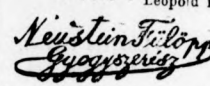 Leopold
Neustein Fülöp
Gyogyszerész